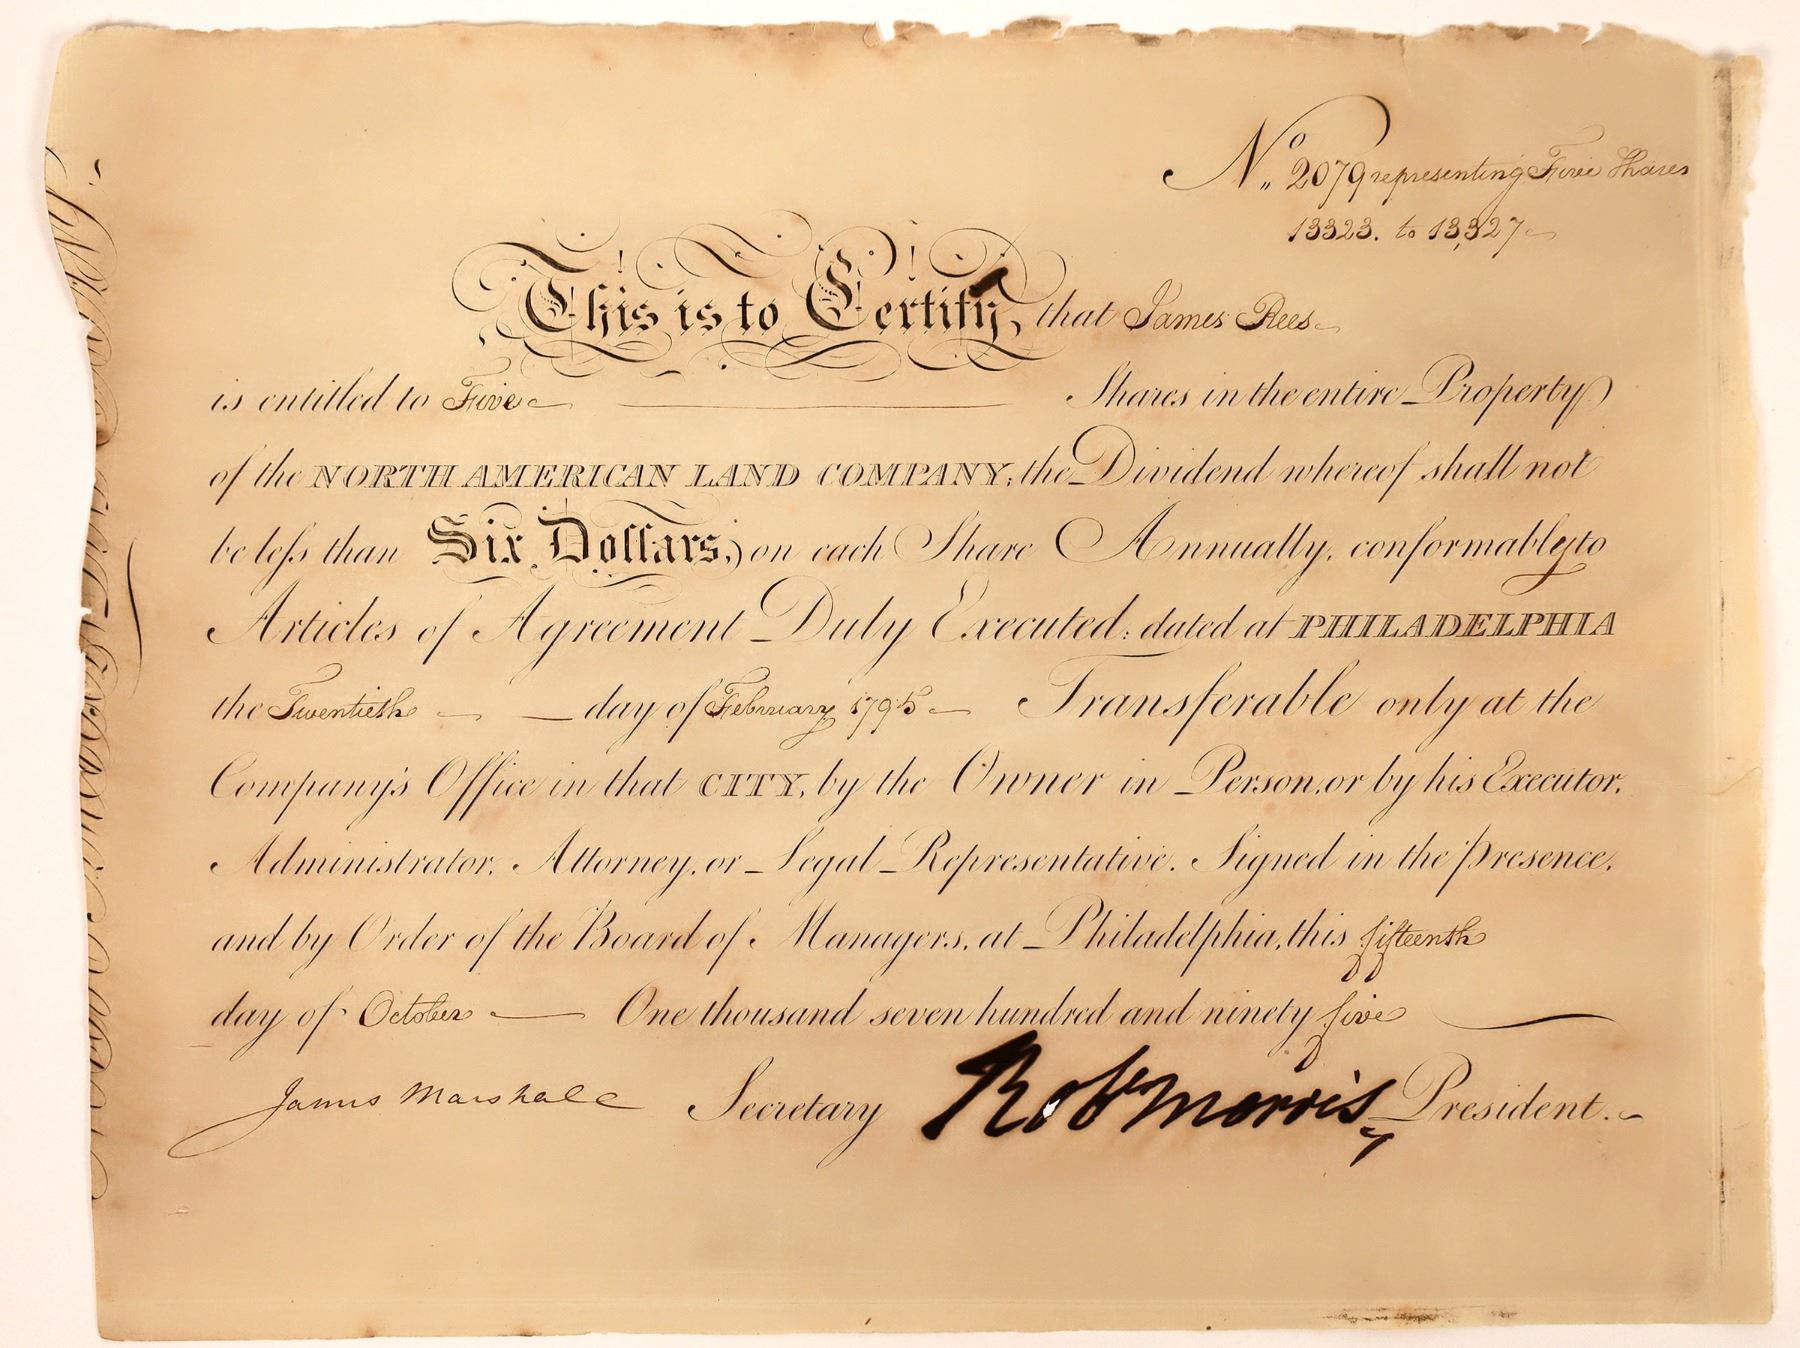 No. 2079 representing Five Shares
13323. to 13,327
This is to Certify, that James Rees
is entitled to Five Shares in the entire Property
of the NORTH AMERICAN LAND COMPANY; the Dividend whereof shall not
be leſs than Six Dollars, on each Share Annually, conformably to
Articles of Agreement Duly Executed: dated at PHILADELPHIA
the Twentieth day of February 1795 Transferable only at the
Company's Office in that CITY, by the Owner in Person, or by his Executor,
Administrator, Attorney, or Legal Representative. Signed in the presence,
and by Order of the Board of Managers, at Philadelphia, this fifteenth
day of October One thousand seven hundred and ninety five
James Marshall Secretary Robt Morris President.